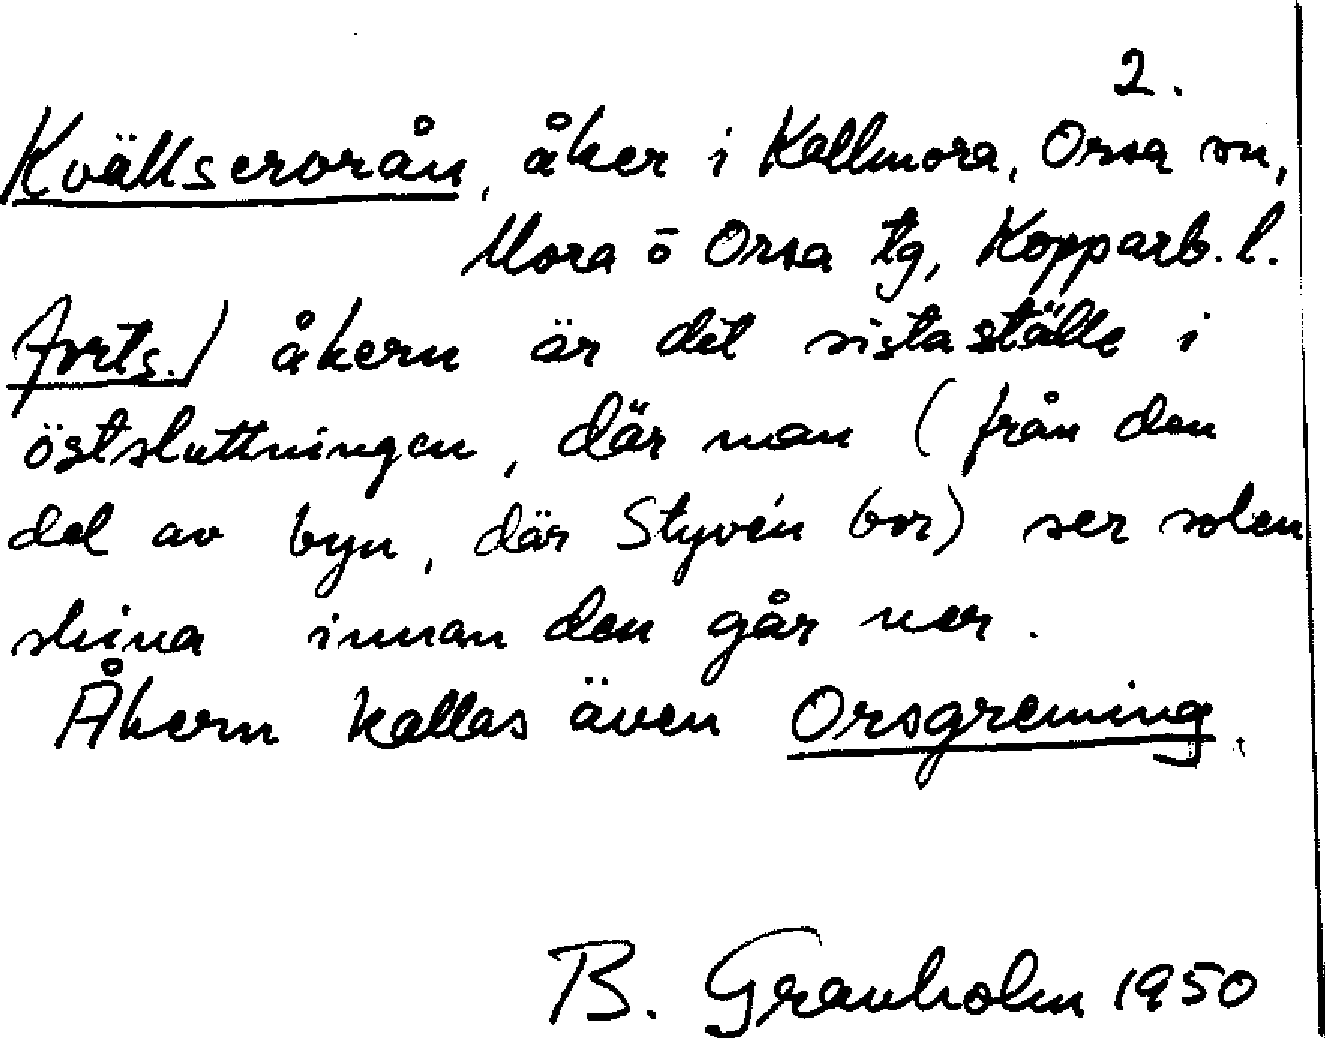 2.
Kvällserorån, åker i Kallmora, Orsa sn,
Mora o Orsa tg, Kopparb. l.
Forts.) åkern är det sista ställe i
östsluttningen, där man (från den
del av byn, där Styvén bor) ser solen
skina innan den går ner.
Åkern kallas även Orsgrening.
B. Granholm 1950